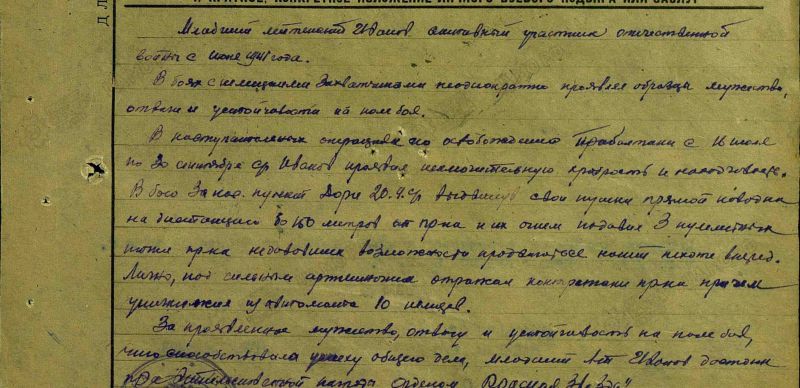 I КРАТКОЕ, КОНКРЕТНОЕ ИЗЛОЖЕНИЕ ЛИЧНОГО БОЕВОГО ПОДВИГА ИЛИ ЗАСЛУГ
Младший лейтенант Иванов активный участник отечественной
войны с июня 1941 года.
В боях с немецкими захватчиками неоднократно проявлял образцы мужества,
отваги и устойчивости на поле боя.
В наступательных операциях по освобождению Прибалтики с 16 июля
по 30 сентября с/г Иванов проявил исключительную храбрость и находчивость.
В бою за нас. пункт 20.9. с/г свои пушки прямой наводки
на дистанцию до 150 метров от пр-ка и их огнем подавил 3 пулеметных
пр-ка возможности продвигаться нашей пехоте вперед.
Лично, под сильным отражал контратаки пр-ка причем
уничтожил из автомата 10 немцев.
За проявленное мужество, отвагу и устойчивость на поле боя,
что способствовало успеху общего дела, младший л-т Иванов достоин
награды орденом "Красная Звезда"